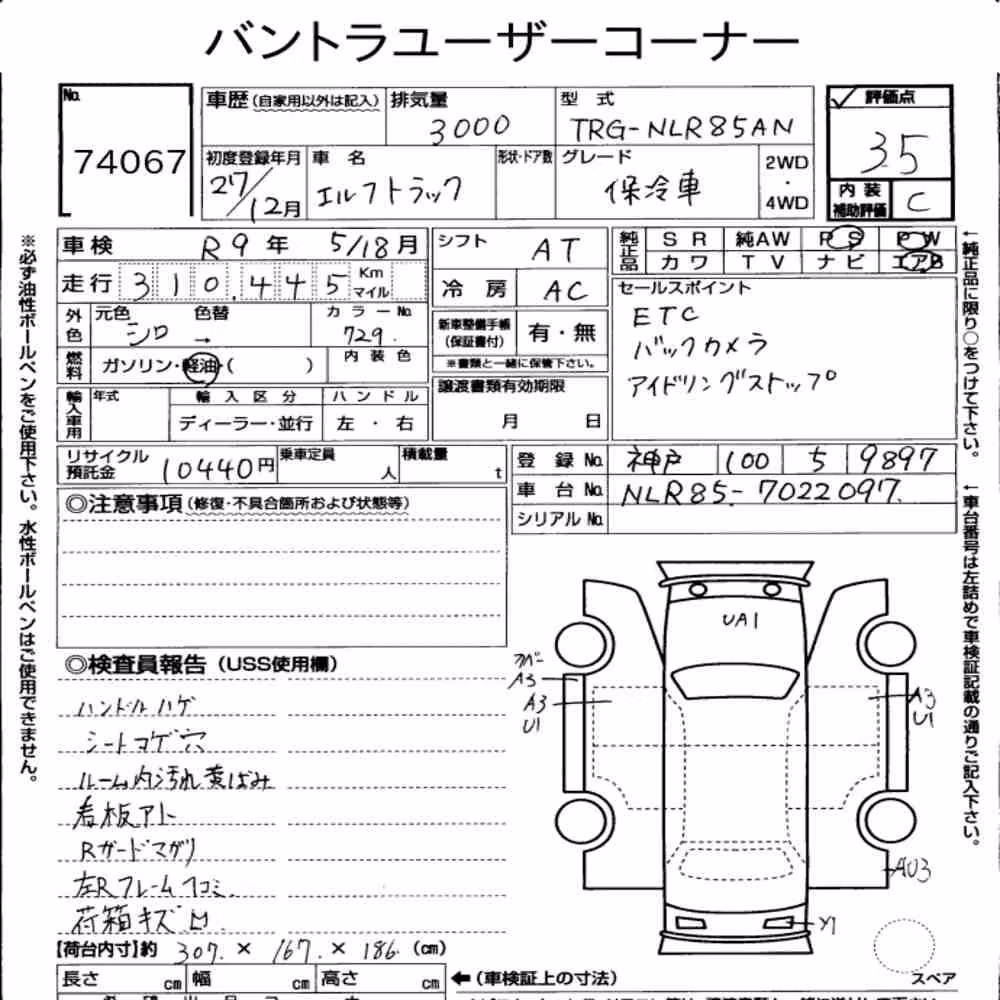 バントラユーザーコーナー
No. 74067
車歴 (自家用以外は記入) 排気量 3000 型 式 TRG-NLR85AN
初度登録年月 27/12月 車 名 エルフトラック 形状・ドア数 グレード 保冷車 2WD・4WD
評価点 3.5
内装補助評価 C
車検 R9年 5/18月
走行 310,445 Km マイル
外色 元色 シロ 色替 → カラーNo. 729
燃料 ガソリン・軽油・( ) 内装色
輸入車用 年式 輸入区分 ディーラー・並行 ハンドル 左・右
シフト AT
冷房 AC
新車整備手帳(保証書付) 有・無
※書類と一緒に保管下さい。
譲渡書類有効期限
月 日
純正品 SR 純AW PS PW
カワ TV ナビ エアB
セールスポイント
ETC
バックカメラ
アイドリングストップ
リサイクル預託金 10440円 乗車定員 人 積載量 t
登録No. 神戸 100 う 9897
車台No. NLR85-7022097
シリアルNo.
◎注意事項(修復・不具合箇所および状態等)
◎検査員報告(USS使用欄)
ハンドルハゲ
シートコゲ穴
ルーム内汚れ黄ばみ
看板アト
Rガードマガリ
左Rフレーム凹コミ
荷箱キズ凹
【荷台内寸】約 307. × 167. × 186. (cm)
長さ cm 幅 cm 高さ cm ←(車検証上の寸法)
UA1
カバー
A3
A3
U1
A3
U1
A03
Y1
スペア
※必ず油性ボールペンをご使用下さい。水性ボールペンはご使用できません。
←純正品に限り○をつけて下さい。
←車台番号は左詰めで車検証記載の通りご記入下さい。